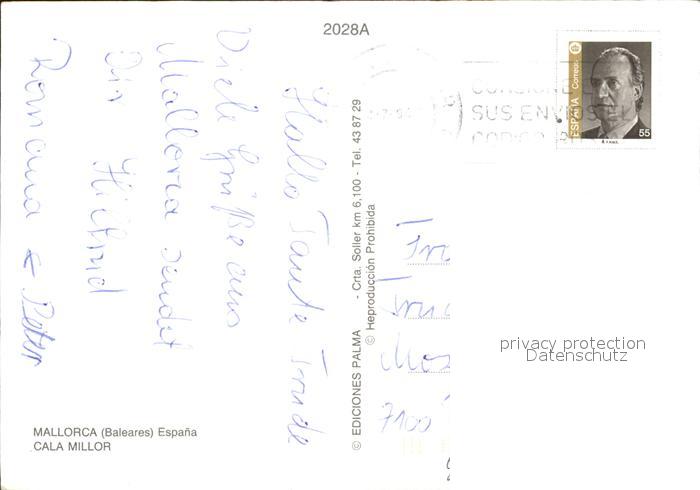 2028A
Hallo Tante Trude
Viele Grüße aus
Mallorca sendet
Dir Hiltrud
Romana & Peter
MALLORCA (Baleares) España
CALA MILLOR
© EDICIONES PALMA - Crta. Soller km 6,100 - Tel. 43 87 29
© Reproducción Prohibida
ESPAÑA Correos
55
SUS ENVIOS
7100
privacy protection
Datenschutz